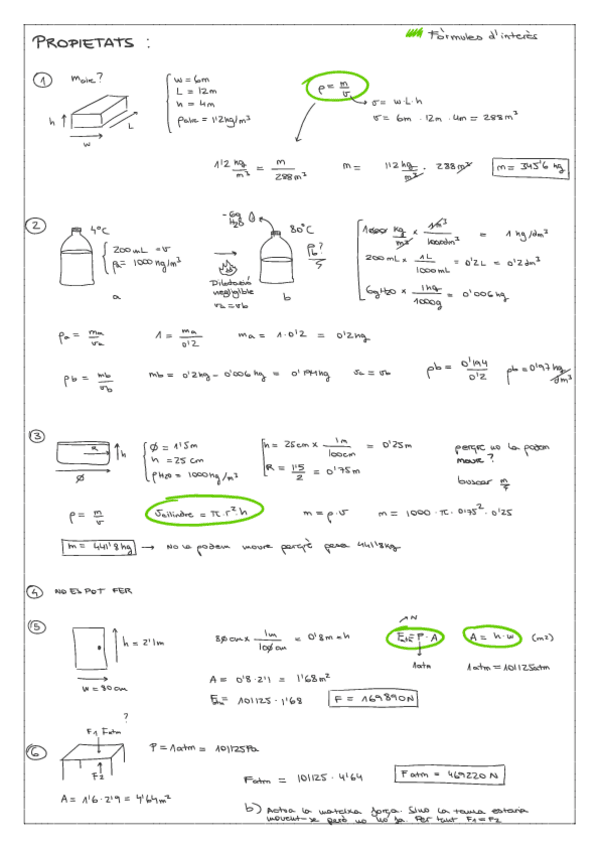 Fórmules d'interès
PROPIETATS :
① maire?
w = 6m
L = 12m
h = 4m
ρaire = 1'2 kg/m³
h
w
L
ρ = m/v
v = w·L·h
v = 6m · 12m · 4m = 288m³
1'2 kg/m³ = m/288m³
m = 1'2 kg/m³ · 288m³
m = 345'6 kg
②
4°C
200mL = v
ρa = 1000 kg/m³
a
-6g H2O
80°C
ρb?
Dilatació
negligible
va = vb
b
1000 kg/m³ × 1m³/1000dm³ = 1 kg/dm³
200 mL × 1L/1000mL = 0'2L = 0'2dm³
6g H2O × 1kg/1000g = 0'006kg
ρa = ma/va
1 = ma/0'2
ma = 1·0'2 = 0'2kg
ρb = mb/vb
mb = 0'2kg - 0'006kg = 0'194kg
va = vb
ρb = 0'194/0'2
ρb = 0'97 kg/dm³
③
R
h
Ø
Ø = 1'5m
h = 25cm
ρH2O = 1000 kg/m³
h = 25cm × 1m/100cm = 0'25m
R = 1'5/2 = 0'75m
perquè no la podem
moure?
buscar
ρ = m/v
vcilindre = π · r² · h
m = ρ·v
m = 1000 · π · 0'75² · 0'25
m = 441'8kg → No la podem moure perquè pesa 441'8kg
④ NO ES POT FER
⑤
h = 2'1m
w = 80cm
80cm × 1m/100cm = 0'8m
A = 0'8 · 2'1 = 1'68m²
N
F = P · A
1atm
A = h·w (m²)
1atm = 101125
= 101125 · 1'68
F = 169890N
⑥
?
F1 Fatm
F2
P = 1atm = 101125Pa
A = 1'6 · 2'9 = 4'64m²
Fatm = 101125 · 4'64
Fatm = 469220 N
b) Actua la mateixa força. Sino la taula estaria
movent-se però no ho fa. Per tant F1 = F2